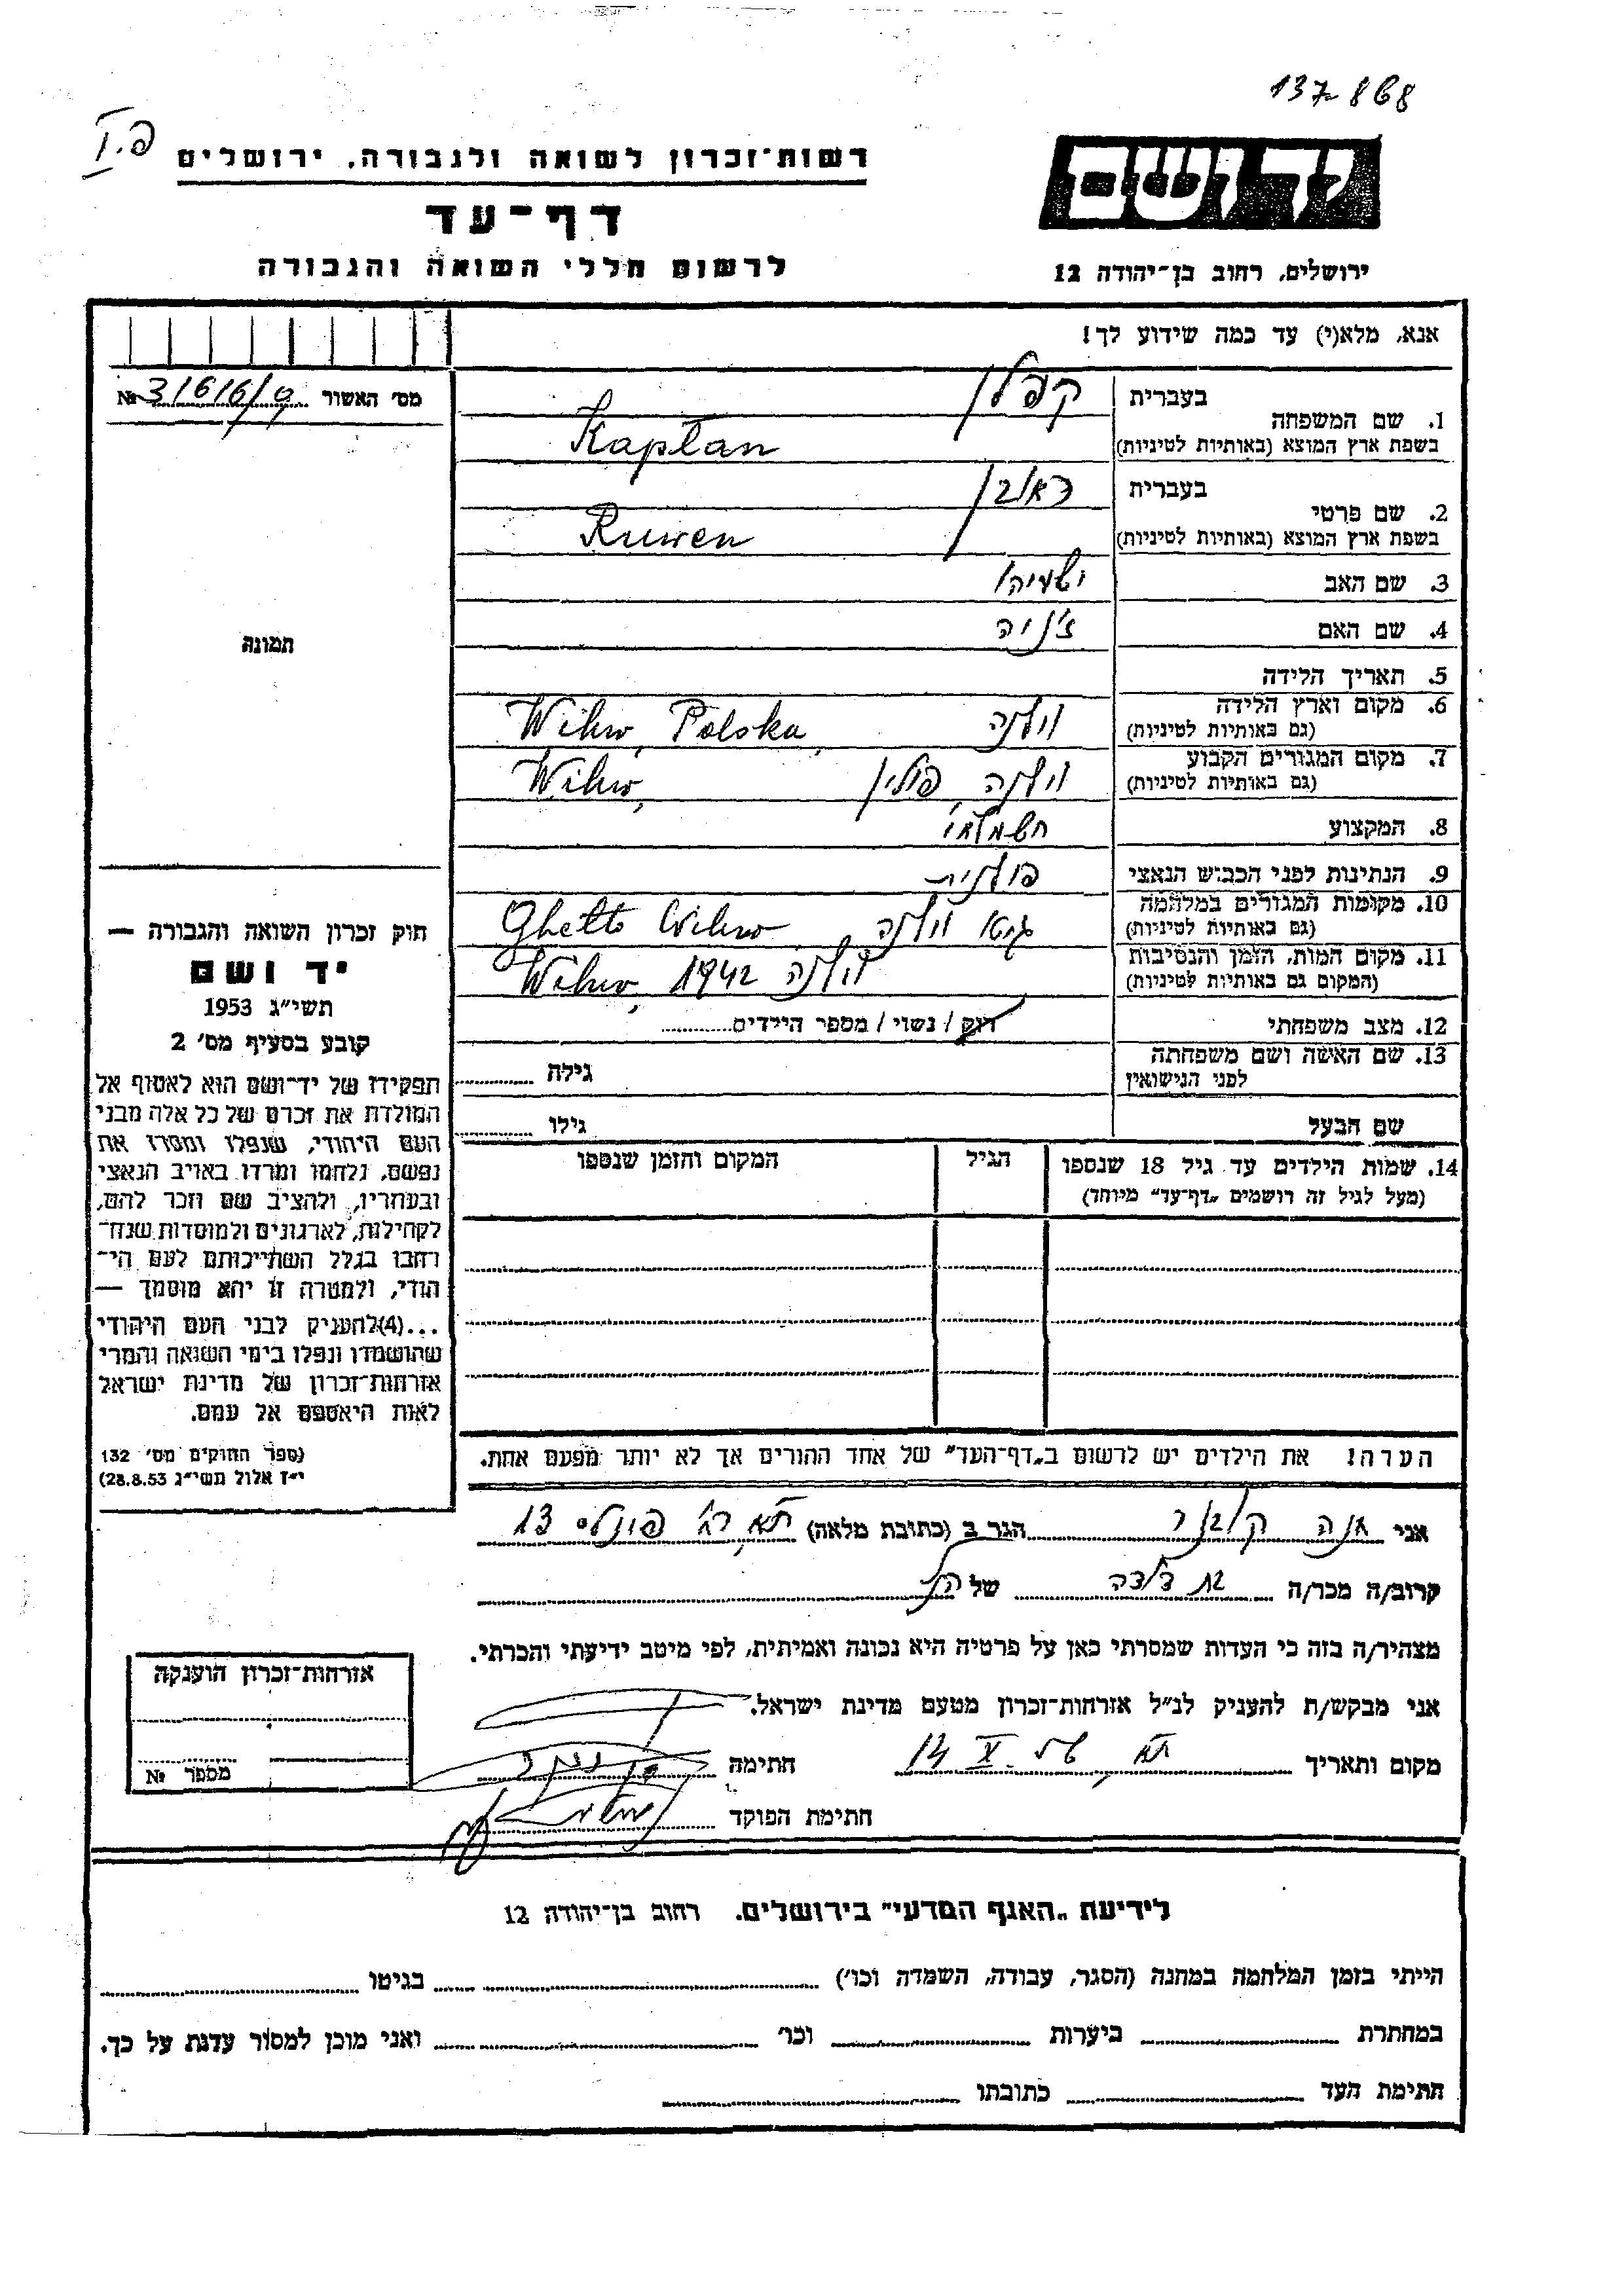 137-868
פ.I
רשות-זכרון לשואה ולגבורה, ירושלים
דף-עד
לרשום חללי השואה והגבורה
יד ושם
ירושלים, רחוב בן-יהודה 12
אנא, מלא(י) עד כמה שידוע לך!
מס' האשור №
1. שם המשפחה
בעברית קפלן
בשפת ארץ המוצא (באותיות לטיניות) Kapłan
2. שם פרטי
בעברית ראובן
בשפת ארץ המוצא (באותיות לטיניות) Ruwen
3. שם האב ישעיהו
4. שם האם ז'ניה
5. תאריך הלידה
6. מקום וארץ הלידה
(גם באותיות לטיניות) וילנה Wilno, Polska
7. מקום המגורים הקבוע
(גם באותיות לטיניות) וילנה, פולין Wilno,
8. המקצוע חשמלאי
9. הנתינות לפני הכבוש הנאצי פולנית
10. מקומות המגורים במלחמה
(גם באותיות לטיניות) גיטו וילנה Ghetto Wilno
11. מקום המות, הזמן והנסיבות
(המקום גם באותיות לטיניות) וילנה 1942 Wilno,
12. מצב משפחתי רוק / נשוי / מספר הילדים
13. שם האשה ושם משפחתה
לפני הנישואין גילה
שם הבעל גילו
14. שמות הילדים עד גיל 18 שנספו
(מעל לגיל זה רושמים „דף-עד" מיוחד)
הגיל
המקום והזמן שנספו
הערה! את הילדים יש לרשום ב„דף-העד" של אחד ההורים אך לא יותר מפעם אחת.
תמונה
חוק זכרון השואה והגבורה —
יד ושם
תשי"ג 1953
קובע בסעיף מס' 2
תפקידו של יד-ושם הוא לאסוף אל
המולדת את זכרם של כל אלה מבני
העם היהודי, שנפלו ומסרו את
נפשם, נלחמו ומרדו באויב הנאצי
ובעוזריו, ולהציב שם וזכר להם,
לקהילות, לארגונים ולמוסדות שנח-
רחבו בגלל השתייכותם לעם הי-
הודי, ולמטרה זו יהא מוסמך —
...(4)להעניק לבני העם היהודי
שהושמדו ונפלו בימי השואה והמרי
אזרחות-זכרון של מדינת ישראל
לאות היאספם אל עמם.
(ספר החוקים מס' 132
י"ז אלול תשי"ג 28.8.53)
אני חנה הגר ב (כתובת מלאה) ת"א, רח' 13
קרוב/ה מכר/ה בת דודה של הנ"ל
מצהיר/ה בזה כי העדות שמסרתי כאן על פרטיה היא נכונה ואמיתית, לפי מיטב ידיעתי והכרתי.
אני מבקש/ת להעניק לנ"ל אזרחות-זכרון מטעם מדינת ישראל.
מקום ותאריך ת"א, חתימה
חתימת הפוקד
אזרחות-זכרון הוענקה
מספר №
לידיעת „האגף המדעי" בירושלים. רחוב בן-יהודה 12
הייתי בזמן המלחמה במחנה (הסגר, עבודה, השמדה וכו') בגיטו
במחתרת ביערות וכו' ואני מוכן למסור עדות על כך.
חתימת העד כתובתו